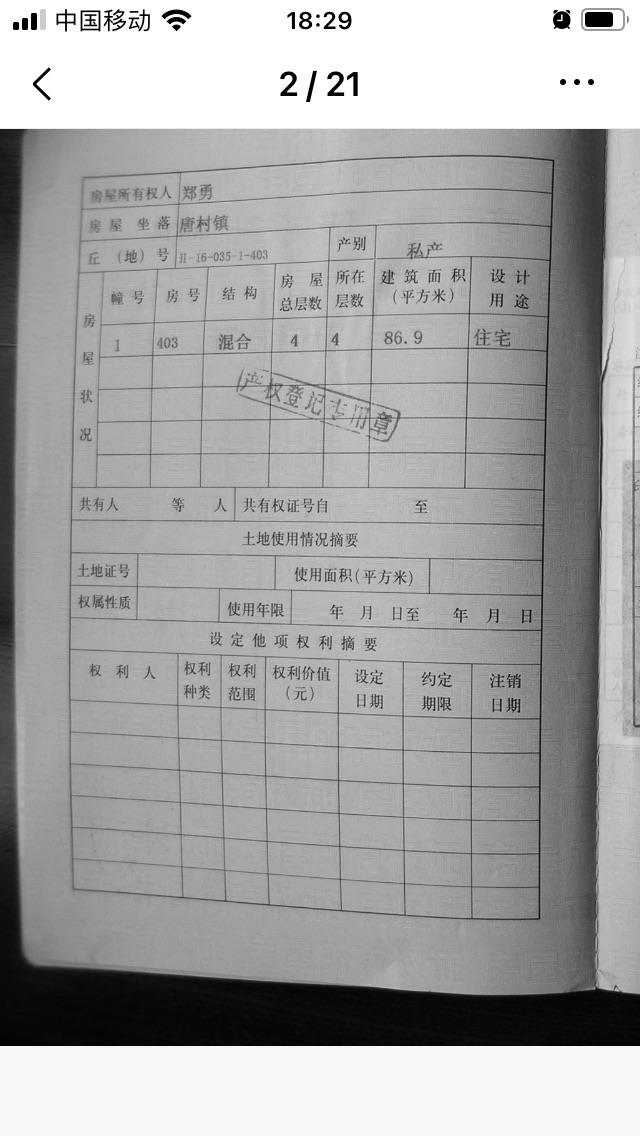 中国移动 18:29
2 / 21
房屋所有权人 郑勇
房屋坐落 唐村镇
丘（地）号 II-16-035-1-403 产别 私产
房屋状况
幢号 房号 结构 房屋总层数 所在层数 建筑面积（平方米） 设计用途
1 403 混合 4 4 86.9 住宅
产权登记专用章
共有人 等 人 共有权证号自 至
土地使用情况摘要
土地证号 使用面积(平方米)
权属性质 使用年限 年 月 日至 年 月 日
设定他项权利摘要
权利人 权利种类 权利范围 权利价值（元） 设定日期 约定期限 注销日期